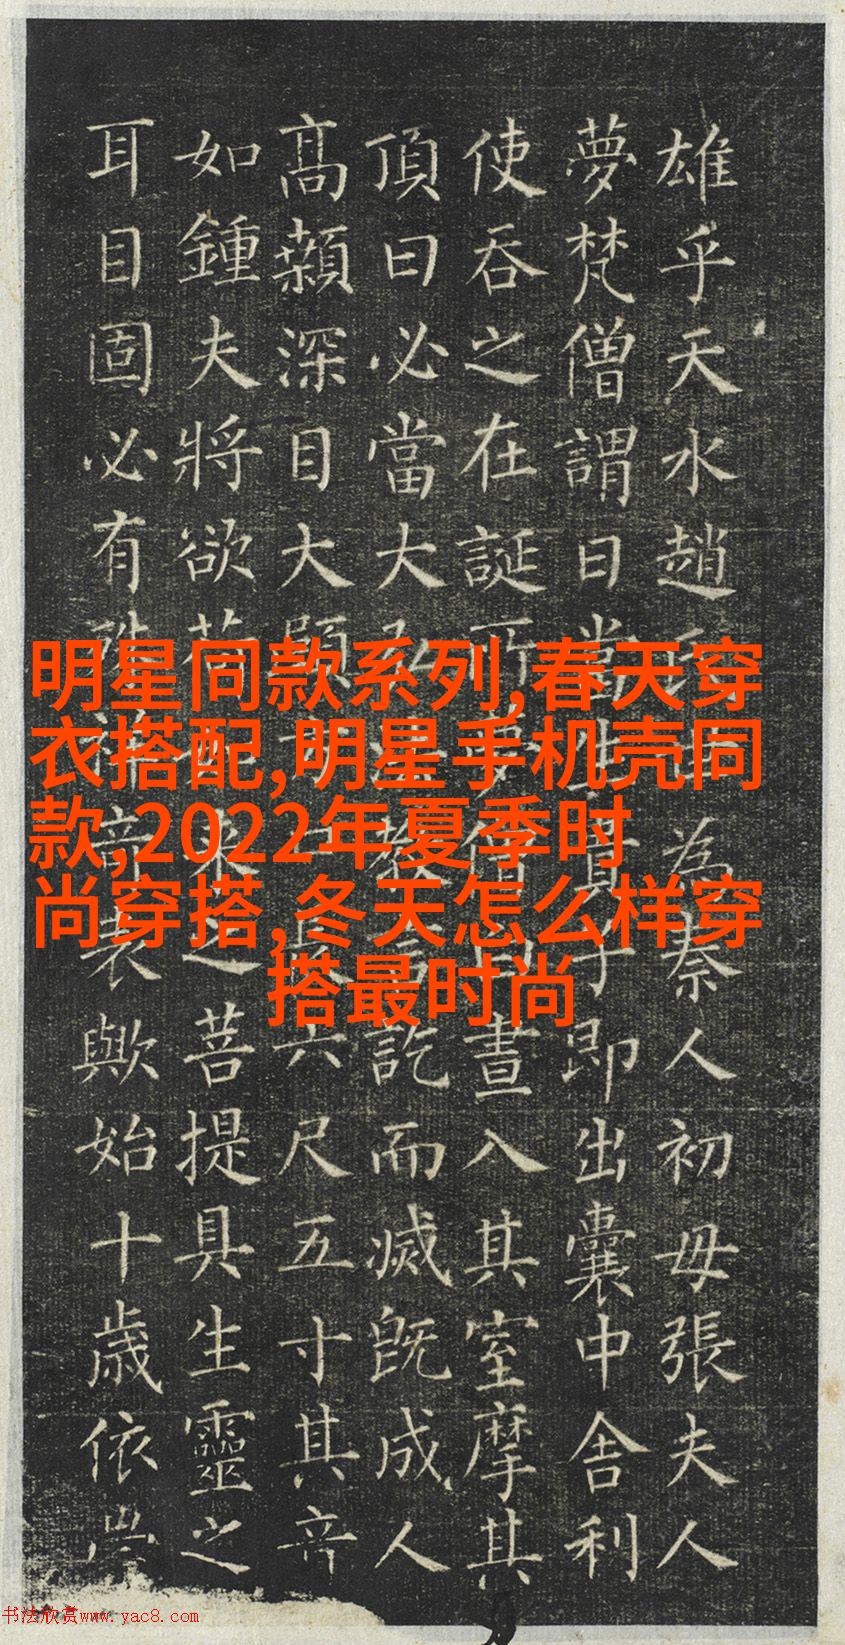 雄乎天水趙為秦人初母張夫人
夢梵僧謂曰當生貴子即出囊中舍利
使吞之在誕所夢僧白晝入其室摩其
頂曰必當大弘法教言訖而滅既成人
高顙深目大頤六尺五寸其音
如鍾夫將欲荷來之菩提具生靈之
耳目固必有殊祥奇表歟始十歲依
明星同款系列,春天穿
衣搭配,明星手机壳同
款,2022年夏季时
尚穿搭,冬天怎么样穿
搭最时尚
书法欣赏www.yac8.com